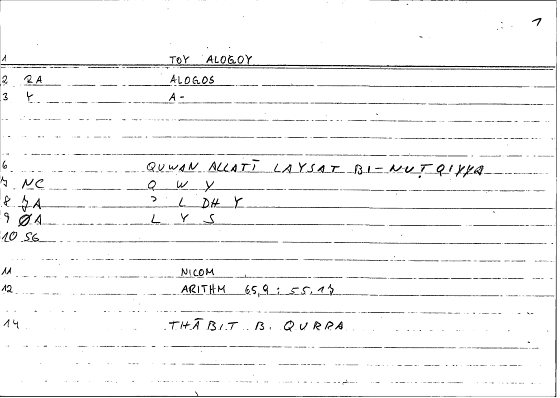 1
1 TOY ALOGOY
2 2A ALOGOS
3 Y A-
6 QUWAN ALLATĪ LAYSAT BI-NUṬQIYYA
7 NC Q W Y
8 7A ʾ L DH Y
9 ØA L Y S
10 SG
11 NICOM
12 ARITHM 65,9 : 55,17
14 THĀBIT B. QURRA